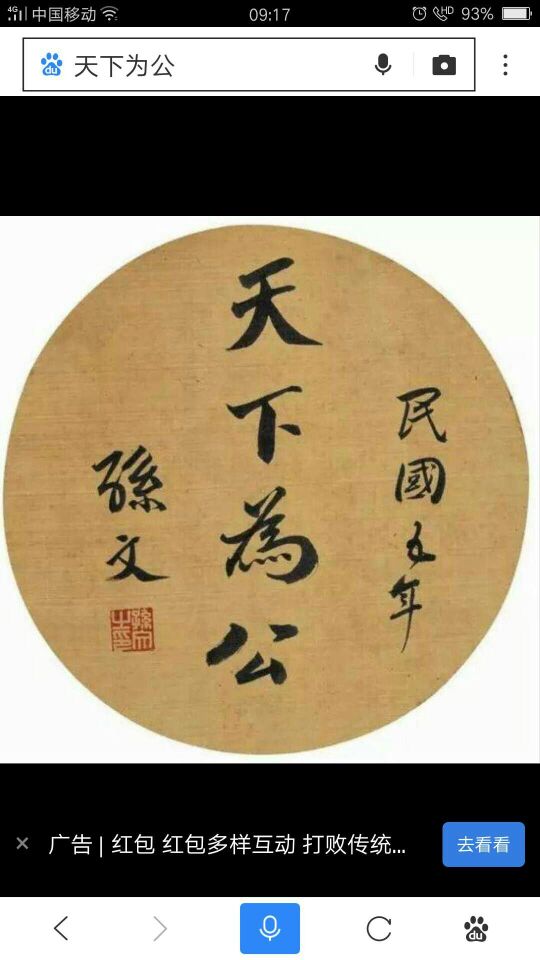 4G 中国移动 09:17 HD 93%
du 天下为公
民國五年
天下為公
孫文
孫文之印
× 广告 | 红包 红包多样互动 打败传统... 去看看
du